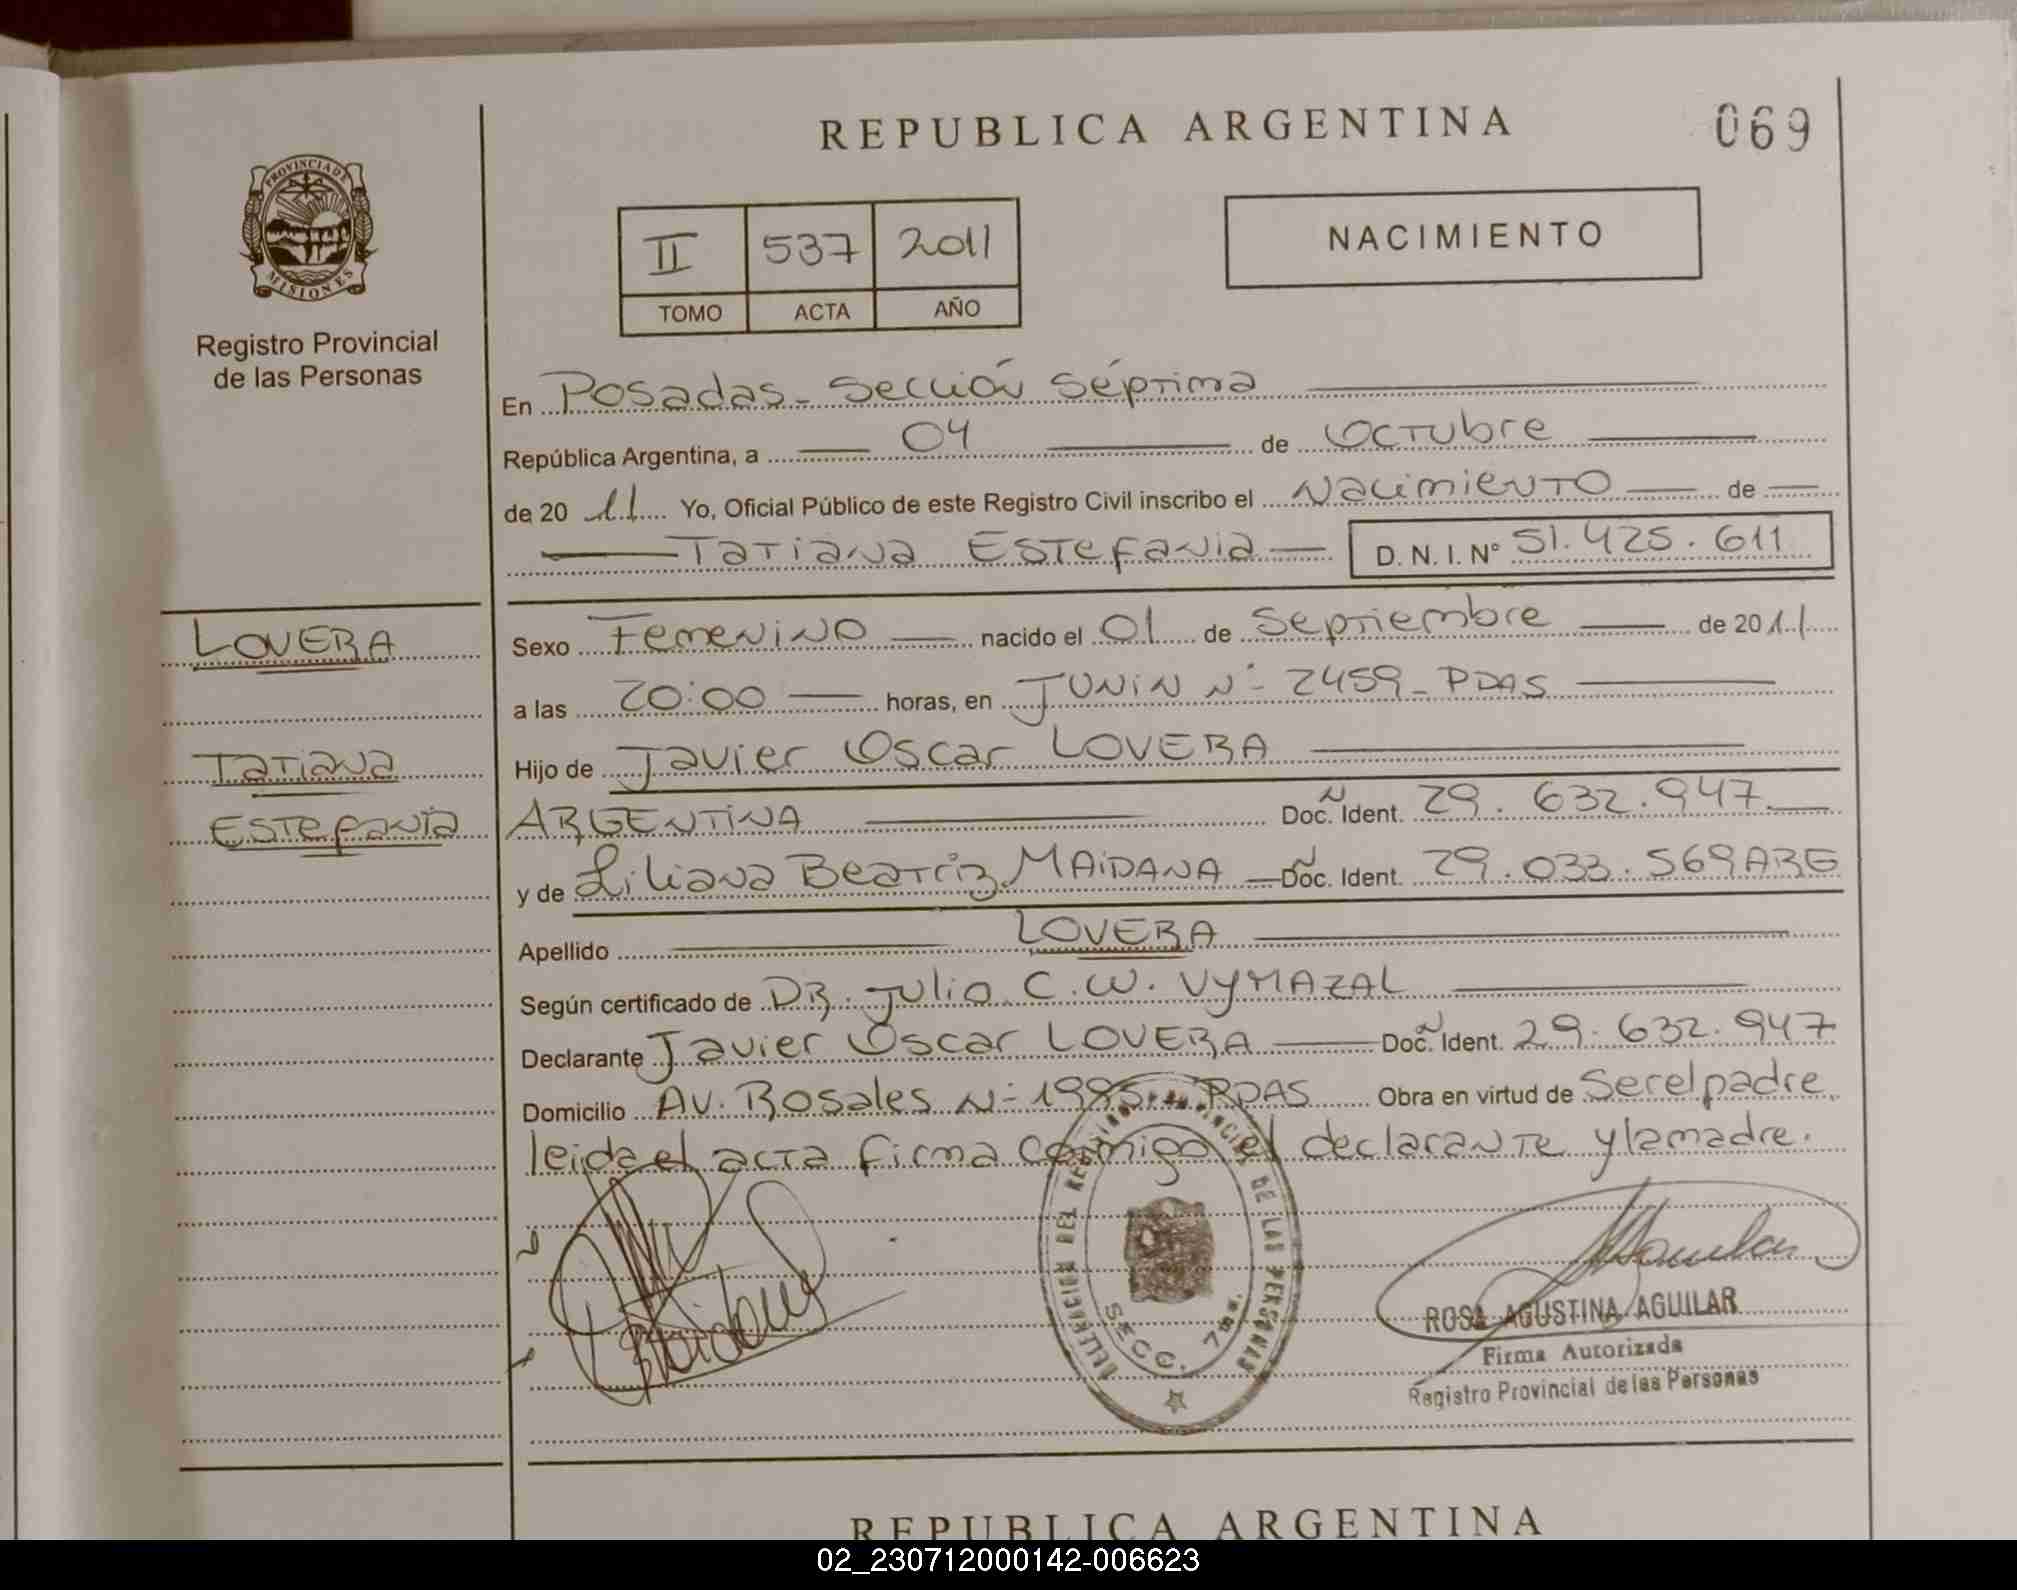 REPUBLICA ARGENTINA
069
PROVINCIA DE
MISIONES
Registro Provincial
de las Personas
II 537 2011
TOMO ACTA AÑO
NACIMIENTO
En Posadas - Sección Séptima
República Argentina, a 04 de Octubre
de 2011 Yo, Oficial Público de este Registro Civil inscribo el Nacimiento de
Tatiana Estefania D. N. I. Nº 51.425.611
LOVERA
Tatiana
Estefania
Sexo Femenino nacido el 01 de Septiembre de 2011
a las 20:00 horas, en JUNIN Nº 2459 - PDAS
Hijo de Javier Oscar LOVERA
ARGENTINA Doc. Ident. 29.632.947
y de Liliana Beatriz MAIDANA Doc. Ident. 29.033.569 ARG
Apellido LOVERA
Según certificado de DR. Julio C. W. VYMAZAL
Declarante Javier Oscar LOVERA Doc. Ident. 29.632.947
Domicilio AV. Rosales Nº 1985 - PDAS Obra en virtud de Ser el padre
leida el acta firma conmigo el declarante y la madre.
DE LAS PERSONAS
SECC. 7ma.
ROSA AGUSTINA AGUILAR
Firma Autorizada
Registro Provincial de las Personas
REPUBLICA ARGENTINA
02_230712000142-006623